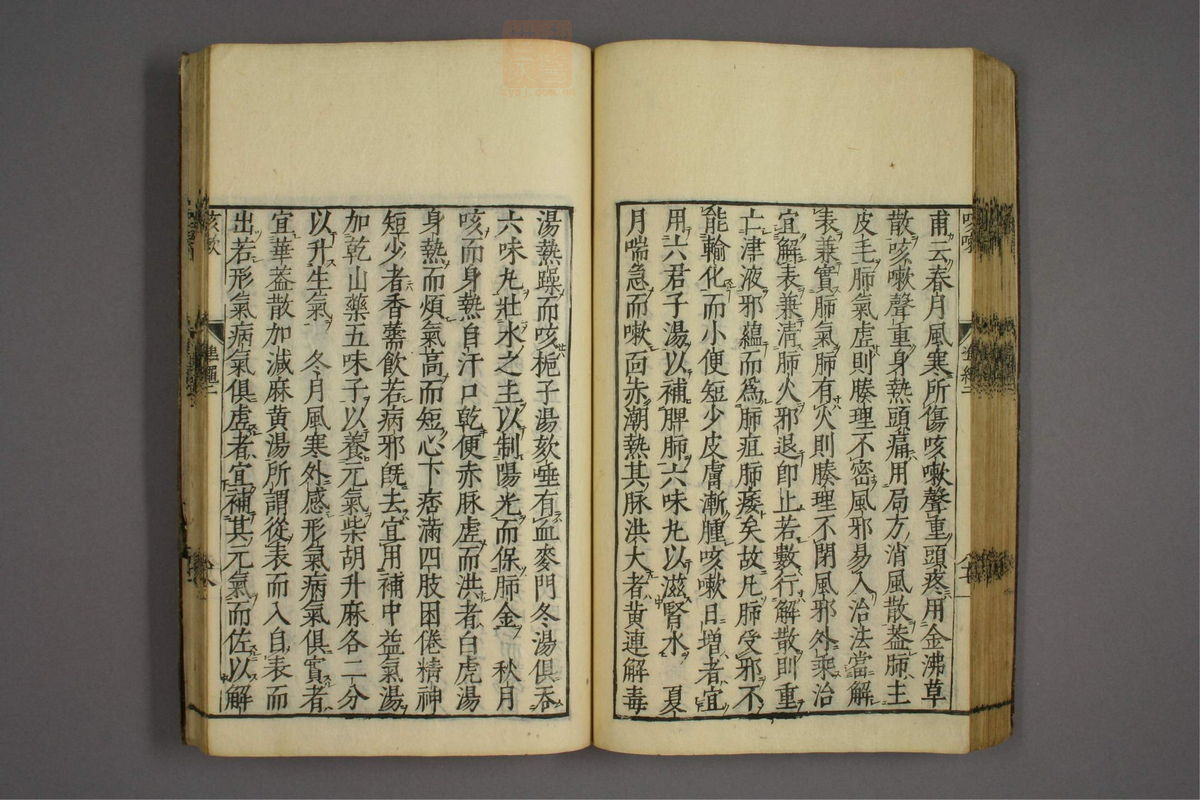 甫云春月風寒所傷咳嗽聲重頭疼用金沸草
散咳嗽聲重身熱頭痛用局方消風散葢肺主
皮毛肺氣虛則腠理不密風邪易入治法當解
表兼實肺氣肺有火則腠理不閉風邪外乘治
宜解表兼清肺火邪退即止若數行解散則重
亡津液邪蘊而爲肺疽肺痿矣故凡肺受邪不
能輸化而小便短少皮膚漸腫咳嗽日增者宜
用六君子湯以補脾肺六味丸以滋腎水 夏
月喘急而嗽面赤潮熱其脉洪大者黄連解毒
湯熱躁而咳梔子湯欬唾有血麥門冬湯俱吞
六味丸壯水之主以制陽光而保肺金 秋月
咳而身熱自汗口乾便赤脉虛而洪者白虎湯
身熱而煩氣高而短心下痞滿四肢困倦精神
短少者香薷飲若病邪旣去宜用補中益氣湯
加乾山藥五味子以養元氣柴胡升麻各二分
以升生氣 冬月風寒外感形氣病氣俱實者
宜華葢散加減麻黄湯所謂從表而入自表而
出若形氣病氣俱虛者宜補其元氣而佐以解
咳嗽 準繩二